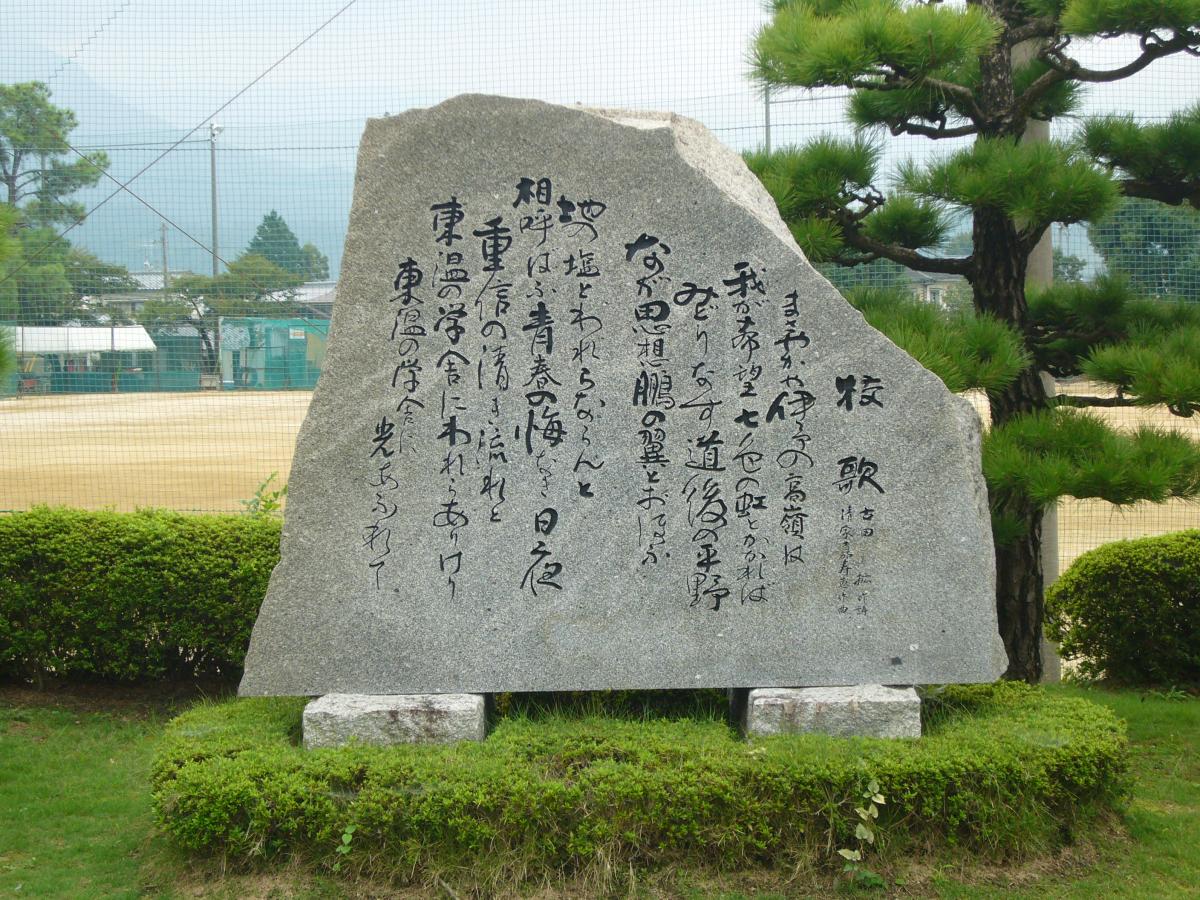 校歌
古田 拡 作詞
清家嘉寿恵 作曲
まさやかや伊予の高嶺は
我が希望七色の虹とかかれば
みどりなす道後の平野
なが思想鵬の翼とおほふ
地の塩とわれらならんと
相呼ばふ青春の悔なき日夜
重信の清き流れと
東温の学舎にわれらありけり
東温の学舎に光あふれて